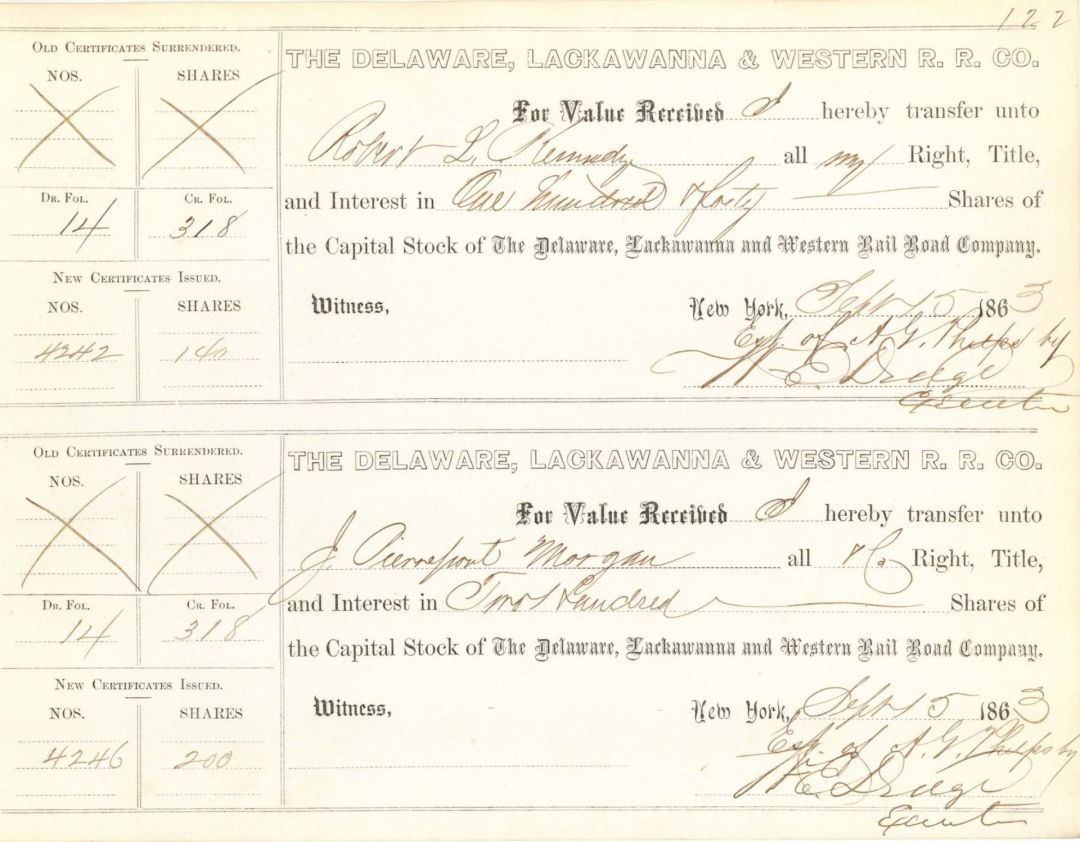 122
OLD CERTIFICATES SURRENDERED.
NOS. SHARES
DR. FOL. CR. FOL.
14 318
NEW CERTIFICATES ISSUED.
NOS. SHARES
4242 140
THE DELAWARE, LACKAWANNA & WESTERN R. R. CO.
For Value Received I hereby transfer unto
Robert L. Kennedy all my Right, Title,
and Interest in One hundred & forty Shares of
the Capital Stock of The Delaware, Lackawanna and Western Rail Road Company.
Witness, New York, Sept 15 1863
Est. of A. G. Phelps by
W E Dodge
Executor
OLD CERTIFICATES SURRENDERED.
NOS. SHARES
DR. FOL. CR. FOL.
14 318
NEW CERTIFICATES ISSUED.
NOS. SHARES
4246 200
THE DELAWARE, LACKAWANNA & WESTERN R. R. CO.
For Value Received I hereby transfer unto
J. Pierrepont Morgan all & Co Right, Title,
and Interest in Two Hundred Shares of
the Capital Stock of The Delaware, Lackawanna and Western Rail Road Company.
Witness, New York, Sept 15 1863
Est. of A. G. Phelps by
W E Dodge
Executor